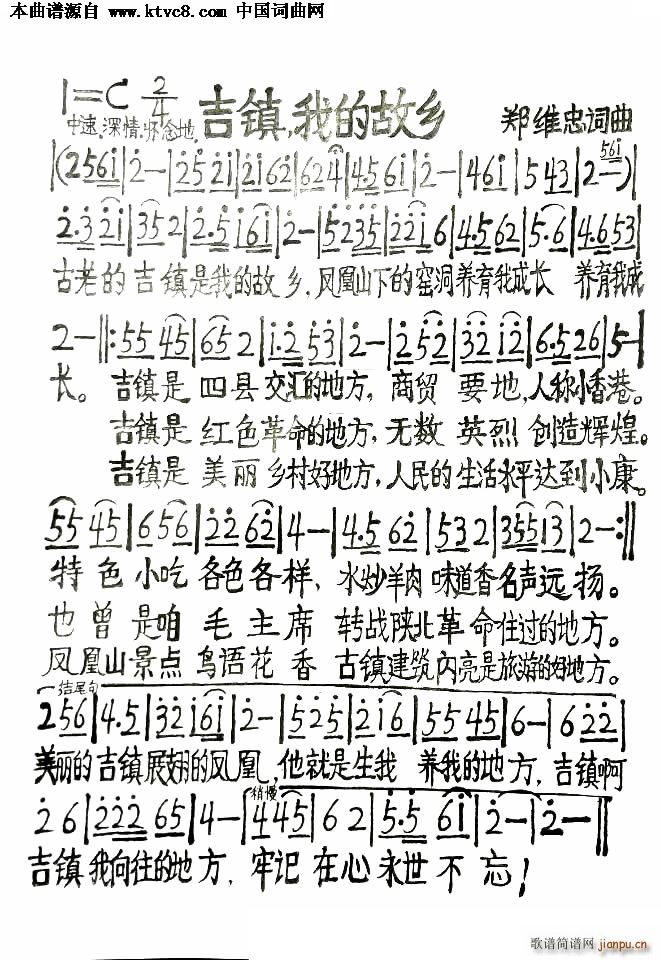 本曲谱源自 www.ktvc8.com 中国词曲网
1=C 2/4 吉镇,我的故乡 郑维忠词曲
中速.深情.怀念地.
|(2561|2-|2521|2162|624|4561|2-|461|543|2-)|
561
2.321|352|2.5161|2-|5235|2216|4.562|5.6|4.653|
古老的吉镇是我的故乡,凤凰山下的窑洞养育我成长 养育我成
2-‖:5545|652|1.253|2-|252|3212|6.526|5-|
长。 吉镇是四县交汇的地方,商贸要地,人称小香港。
吉镇是红色革命的地方,无数英烈创造辉煌。
吉镇是美丽乡村好地方,人民的生活水平达到小康。
5545|656|2262|4-|4.562|532|35513|2-:‖
特色小吃各色各样,水炒羊肉味道香名声远扬。
也曾是咱毛主席转战陕北革命住过的地方。
凤凰山景点鸟语花香古镇建筑闪亮是旅游的好地方。
结尾句
256|4.5|32161|2-|525|216|5545|6-|622|
美丽的吉镇展翅的凤凰,他就是生我养我的地方,吉镇啊
稍慢
26|22265|4-|445|62|5.561|2-|2-‖
吉镇我向往的地方,牢记在心永世不忘!
歌谱简谱网
jianpu.cn